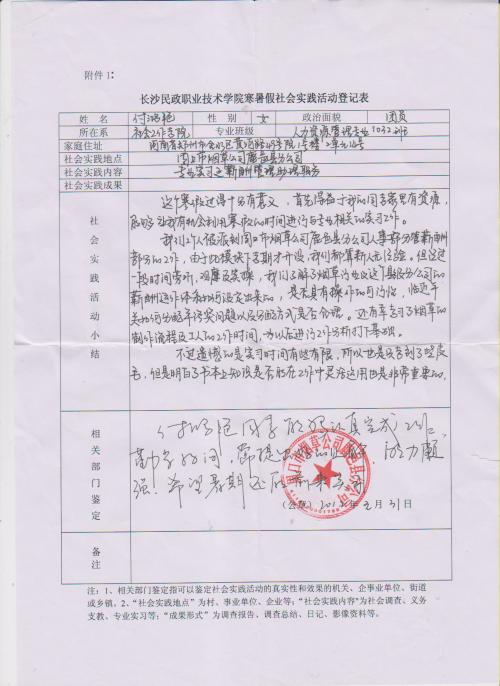 附件1:
长沙民政职业技术学院寒暑假社会实践活动登记表
姓 名 付 艳 性 别 女 政治面貌 团员
所在系 社会工作学院 专业班级 人力资源管理专业1032班
家庭住址 河南省郑州市金水区黄河路
社会实践地点 周口市烟草公司鹿邑县分公司
社会实践内容 专业实习之薪酬管理助理服务
社会实践成果
社会实践活动小结
这个寒假过得十分有意义,首先得益于我的同学家里有资源,
能够让我有机会利用寒假的时间进行与专业相关的实习工作。
我们 人被派到周口市烟草公司鹿邑县分公司人事部分管薪酬
部分的工作,由于此模块下学期才开设,我们都算新人无经验。但经过
一段时间旁听,观摩及实操,我们了解了烟草行业以这个县级分公司的
薪酬运作体系如何设立出来的,是否具有操作的可行性,临近年
关如何分配年终奖问题以及分配方式是否合理。还有学习了烟草的
制作流程及工人的工作时间,为以后进行工作分析打下基础。
不过遗憾的是实习时间有些有限,所以也是只学到了些皮
毛,但是明白了书本上知识是否能在工作中灵活运用也是非常重要的。
相关部门鉴定
付 艳同学能够认真完成工作,
勤学好问, 能力颇
强。希望暑期还能前来实习
周口市烟草公司鹿邑县分公司
(公章) 201 年 月31日
备注
注:1、相关部门鉴定指可以鉴定社会实践活动的真实性和效果的机关、企事业单位、街道
或乡镇。2、“社会实践地点”为村、事业单位、企业等;“社会实践内容”为社会调查、义务
支教、专业实习等;“成果形式”为调查报告、调查总结、日记、影像资料等。